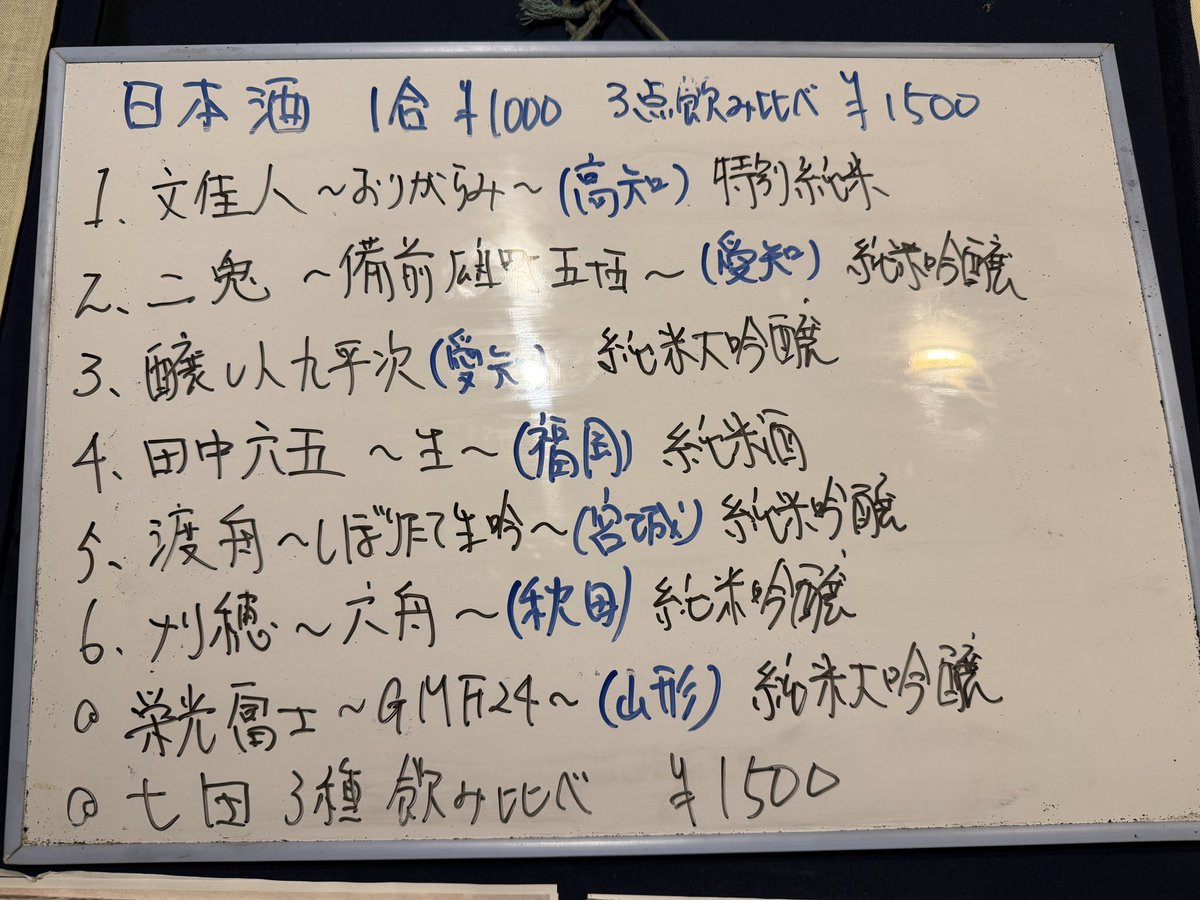 日本酒 1合 ¥1000 3点飲み比べ ¥1500
1、文佳人 ～おりがらみ～ (高知) 特別純米
2、二鬼 ～備前雄町五十五～ (愛知) 純米吟醸
3、醸し人九平次 (愛知) 純米大吟醸
4、田中六五 ～生～ (福岡) 純米酒
5、渡舟～しぼりたて生吟～ (宮城) 純米吟醸
6、刈穂～六舟～ (秋田) 純米吟醸
◎ 栄光冨士～GMF24～ (山形) 純米大吟醸
◎ 七田 3種 飲み比べ ¥1500